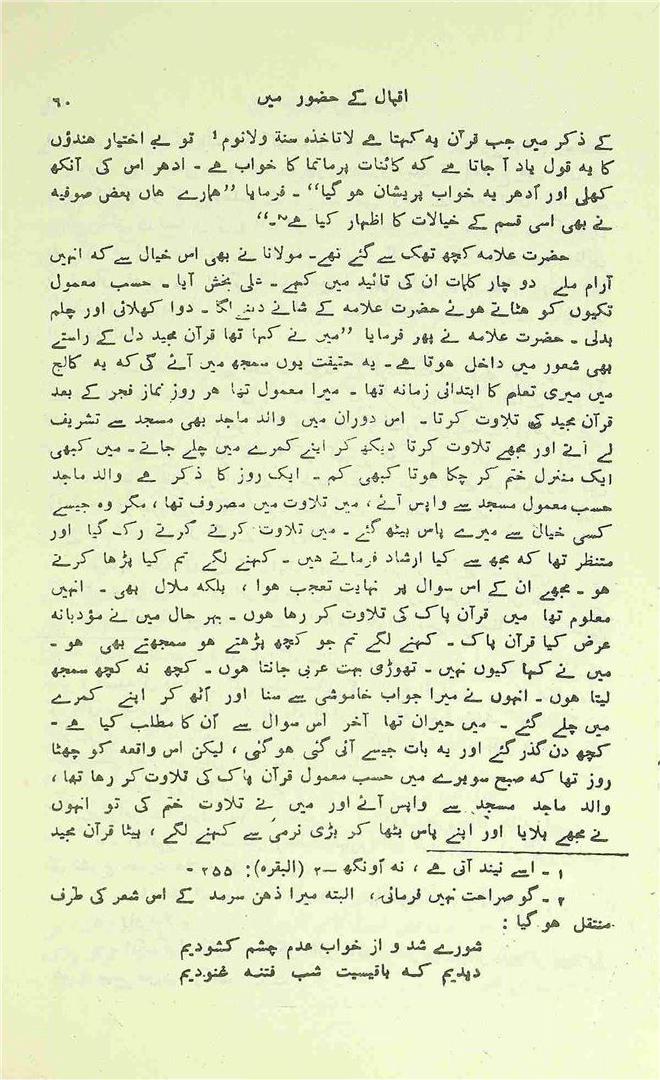 اقبال کے حضور میں ۹۰
کے ذکر میں جب قرآن یہ کہتا ہے لاتاخذہ سنۃ ولانوم۱ تو بے اختیار ھندؤں
کا یہ قول یاد آ جاتا ہے کہ کائنات پرماتما کا خواب ہے ۔ ادھر اس کی آنکھ
کھلی اور اُدھر یہ خواب پریشان ہو گیا“ ۔ فرمایا ”ہمارے ہاں بعض صوفیہ
نے بھی اسی قسم کے خیالات کا اظہار کیا ہے۲۔“
حضرت علامہ کچھ تھک سے گئے تھے۔ مولانا نے بھی اس خیال سے کہ انہیں
آرام ملے دو چار کلمات ان کی تائید میں کہے ۔ علی بخش آیا ۔ حسب معمول
تکیوں کو ہٹاتے ہوئے حضرت علامہ کے شانے دبنے لگا ۔ دوا کھلائی اور چلم
بدلی ۔ حضرت علامہ نے پھر فرمایا ”میں نے کہا تھا قرآن مجید دل کے راستے
بھی شعور میں داخل ہوتا ہے ۔ یہ حقیقت یوں سمجھ میں آئے گی کہ یہ کالج
میں میری تعلیم کا ابتدائی زمانہ تھا ۔ میرا معمول تھا ہر روز نماز فجر کے بعد
قرآن مجید کی تلاوت کرتا ۔ اس دوران میں والد ماجد بھی مسجد سے تشریف
لے آتے اور مجھے تلاوت کرتا دیکھ کر اپنے کمرے میں چلے جاتے ۔ میں کبھی
ایک منزل ختم کر چکا ہوتا کبھی کم ۔ ایک روز کا ذکر ہے والد ماجد
حسب معمول مسجد سے واپس آئے ، میں تلاوت میں مصروف تھا ، مگر وہ جیسے
کسی خیال سے میرے پاس بیٹھ گئے ۔ میں تلاوت کرتے کرتے رک گیا اور
منتظر تھا کہ مجھ سے کیا ارشاد فرماتے ہیں ۔ کہنے لگے تم کیا پڑھا کرتے
ہو ۔ مجھے ان کے اس سوال پر نہایت تعجب ہوا ، بلکہ ملال بھی ۔ انہیں
معلوم تھا میں قرآن پاک کی تلاوت کر رہا ہوں ۔ بہر حال میں نے مؤدبانہ
عرض کیا قرآن پاک ۔ کہنے لگے تم جو کچھ پڑھتے ہو سمجھتے بھی ہو ۔
میں نے کہا کیوں نہیں ۔ تھوڑی بہت عربی جانتا ہوں ۔ کچھ نہ کچھ سمجھ
لیتا ہوں ۔ انہوں نے میرا جواب خاموشی سے سنا اور اُٹھ کر اپنے کمرے
میں چلے گئے ۔ میں حیران تھا آخر اس سوال سے اُن کا مطلب کیا ہے ۔
کچھ دن گذر گئے اور یہ بات جیسے آئی گئی ہو گئی ، لیکن اس واقعہ کو چھٹا
روز تھا کہ صبح سویرے میں حسب معمول قرآن پاک کی تلاوت کر رہا تھا ،
والد ماجد مسجد سے واپس آئے اور میں نے تلاوت ختم کی تو انہوں
نے مجھے بلایا اور اپنے پاس بٹھا کر بڑی نرمی سے کہنے لگے ، بیٹا قرآن مجید
۱ ۔ اسے نیند آتی ہے ، نہ اُونگھ — ۲ (البقرہ): ۲۵۵ ۔
۲ ۔ گو صراحت نہیں فرمائی ، البتہ میرا ذھن سرمد کے اس شعر کی طرف
منتقل ہو گیا :
شورے شد و از خواب عدم چشم کشودیم
دیدیم کہ باقیست شب فتنہ غنودیم